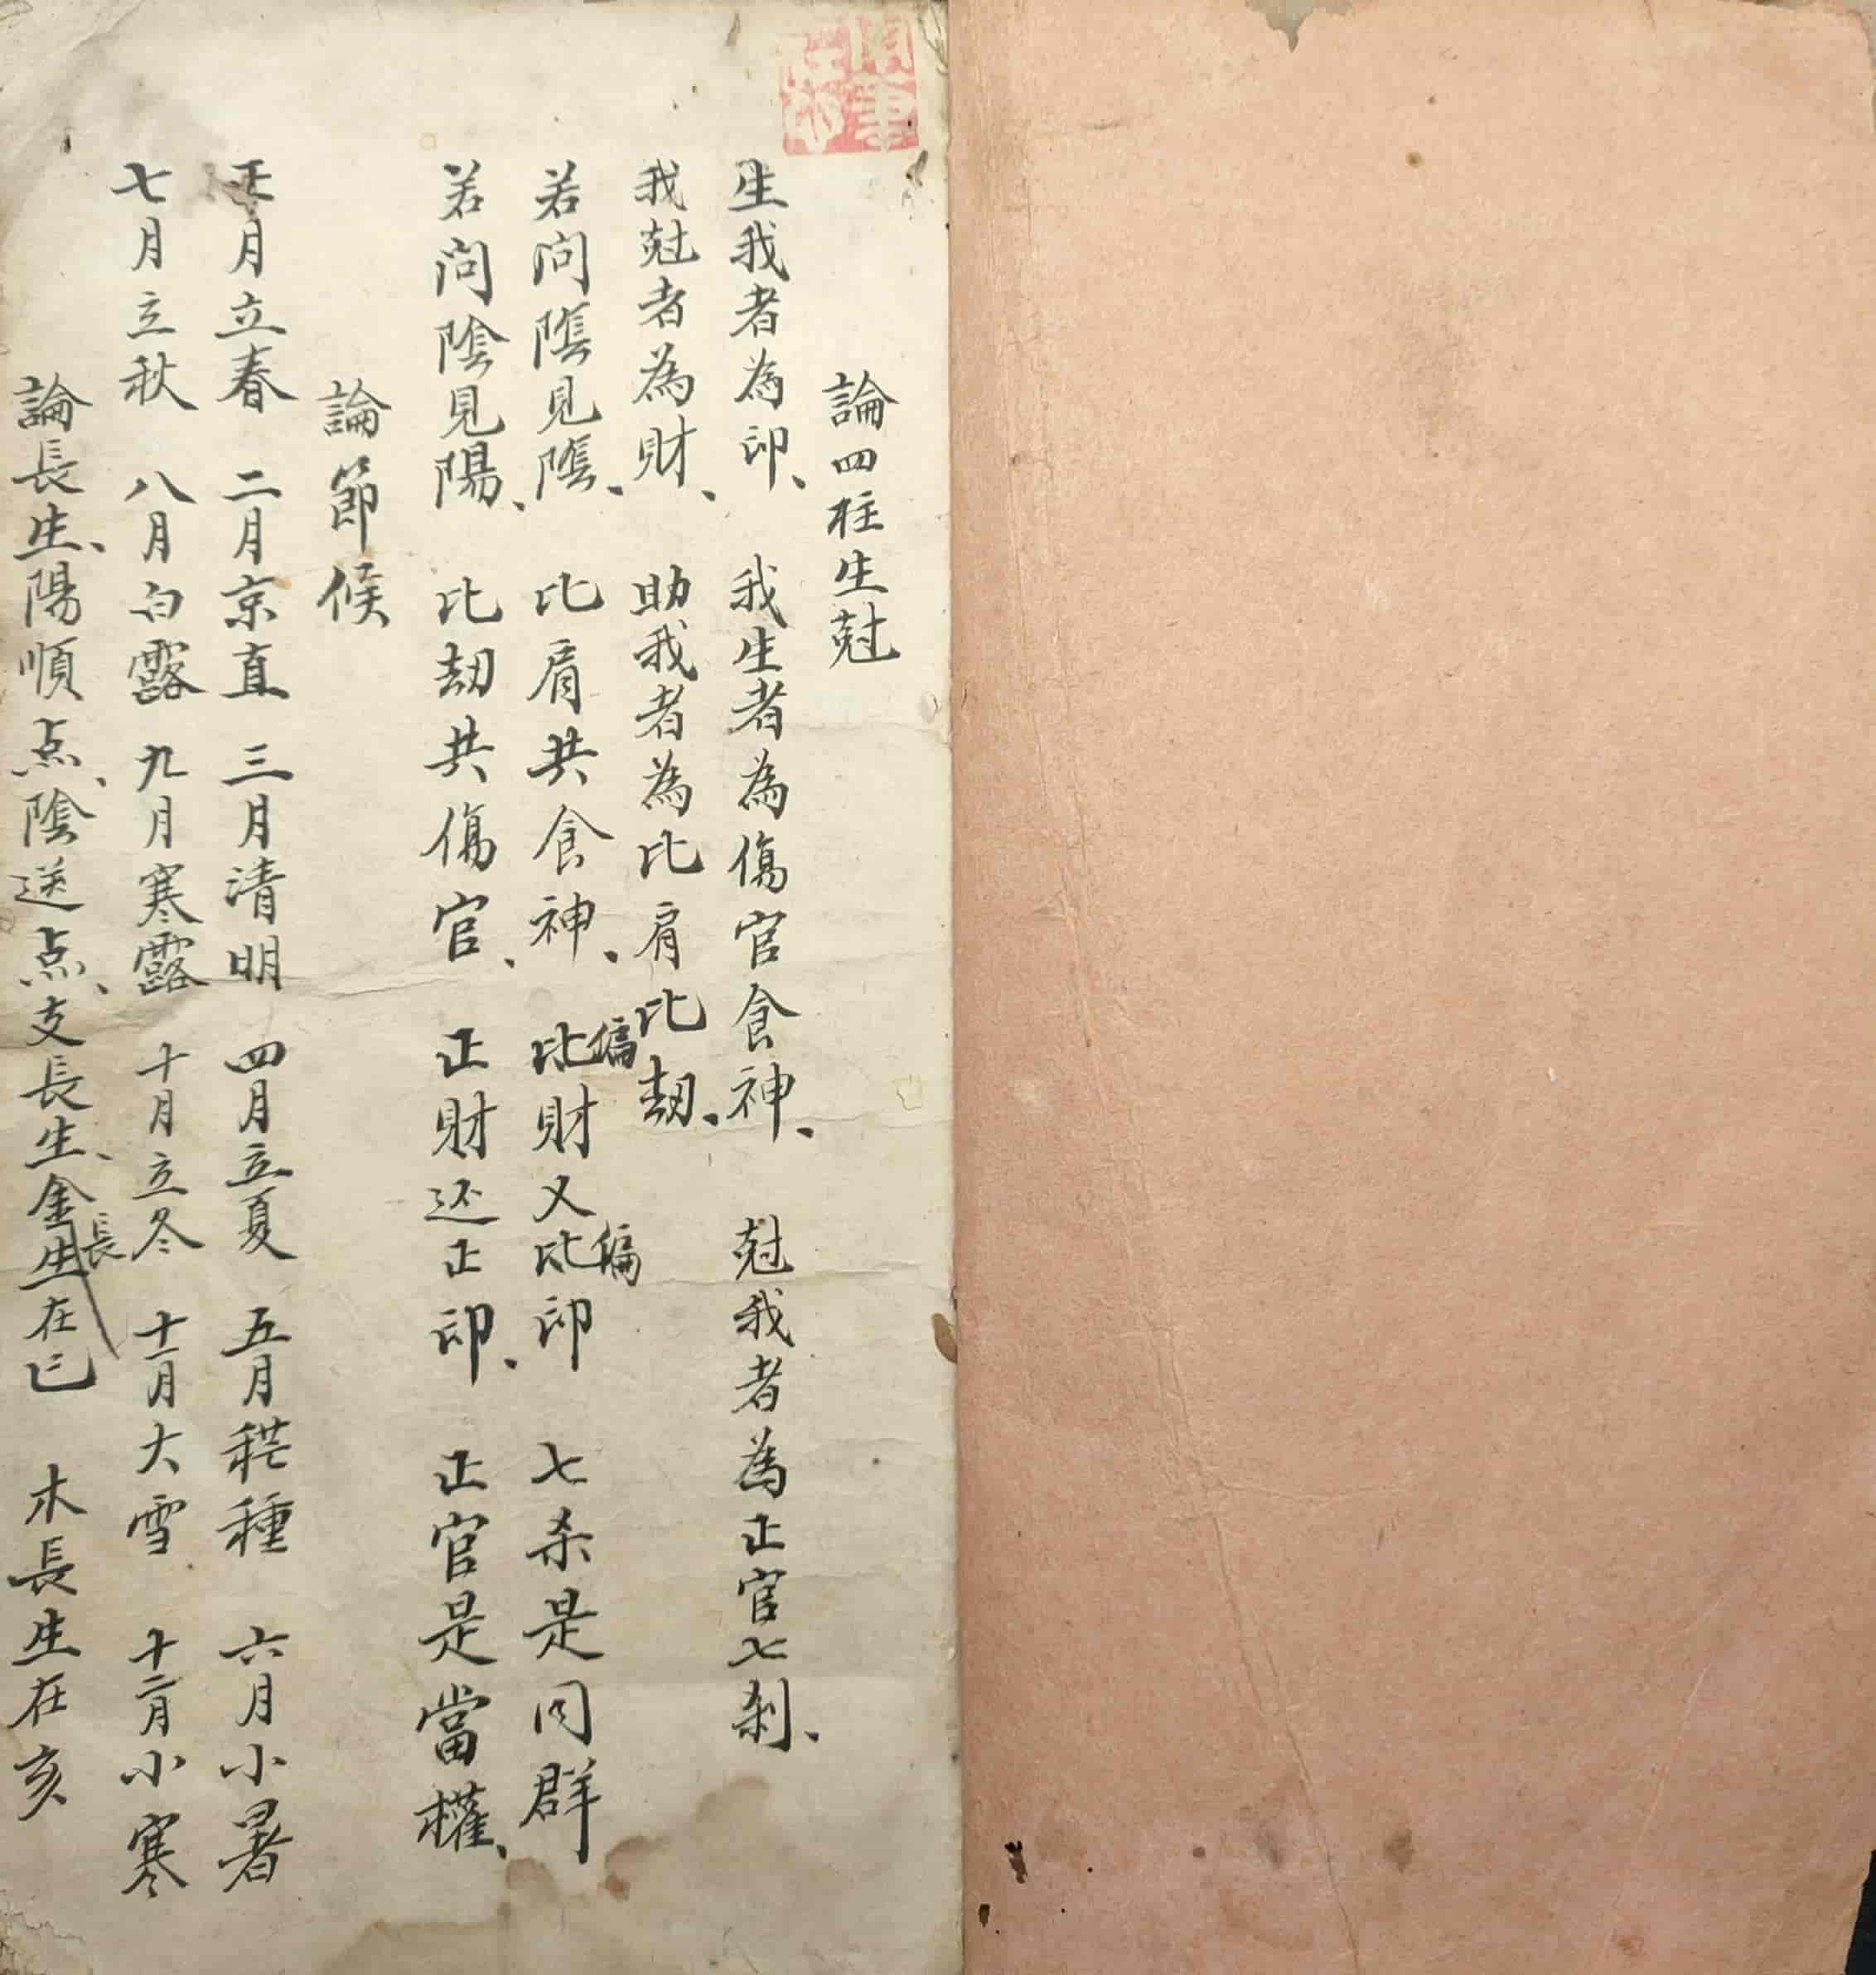 論四柱生尅
生我者為印、 我生者為傷官食神、 尅我者為正官七剎、
我尅者為財、 助我者為比肩比刼、
若問陰見陰、 比肩共食神、 偏財又偏印 七杀是同群
若問陰見陽、 比刼共傷官、 正財还正印、 正官是當權、
論節候
正月立春 二月京直 三月清明 四月立夏 五月秐種 六月小暑
七月立秋 八月白露 九月寒露 十月立冬 十一月大雪 十二月小寒
論長生、陽順点、陰送点、支長生、金長生在巳 木長生在亥